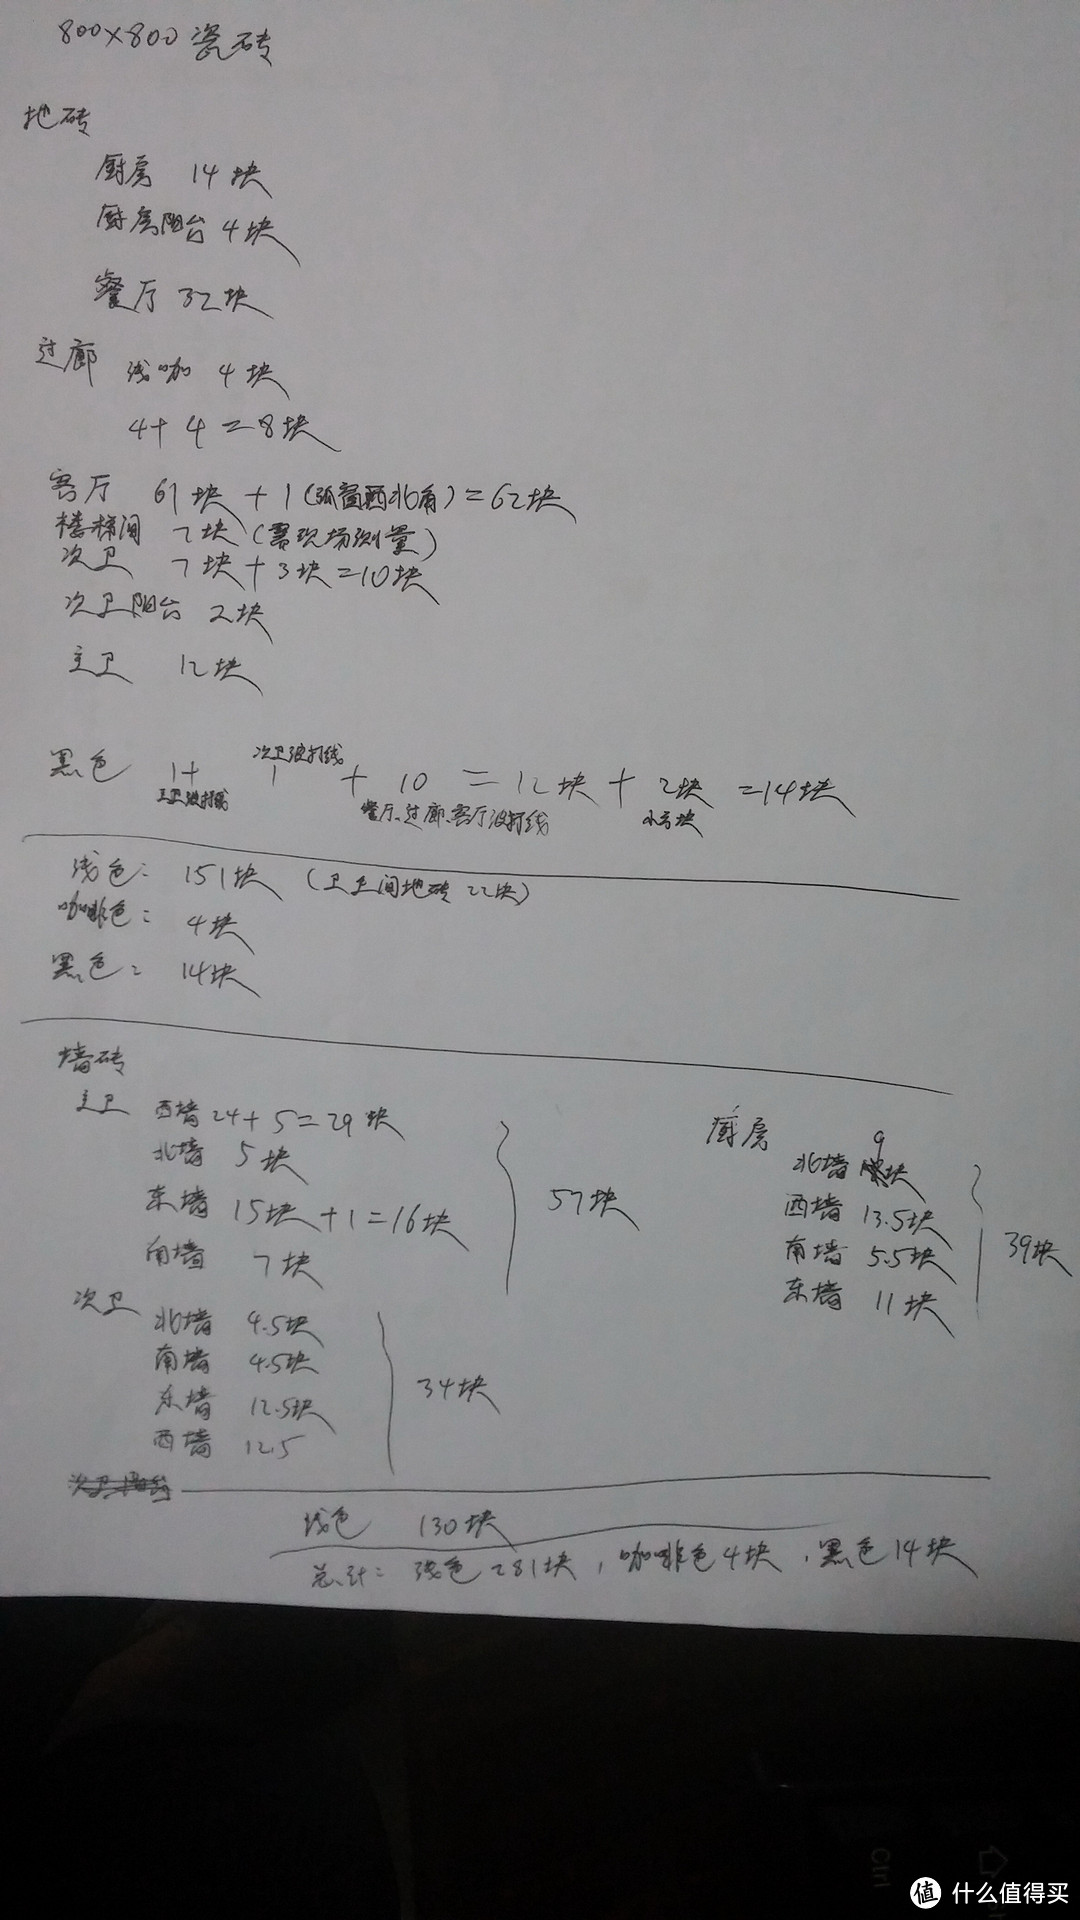 800×800瓷砖
地砖
厨房 14块
厨房阳台 4块
餐厅 32块
过廊 浅咖 4块
4+4=8块
客厅 61块+1(弧窗西北角)=62块
楼梯间 7块(需现场测量)
次卫 7块+3块=10块
次卫阳台 2块
主卫 12块
次卫波打线
黑色 1+1+10=12块+2块=14块
主卫波打线 餐厅、过廊、客厅波打线 小方块
浅色: 151块 (卫生间地砖22块)
咖啡色: 4块
黑色: 14块
墙砖
主卫 西墙 24+5=29块
北墙 5块
东墙 15块+1=16块
南墙 7块
57块
厨房
北墙 9块
西墙 13.5块
南墙 5.5块
东墙 11块
39块
次卫 北墙 4.5块
南墙 4.5块
东墙 12.5块
西墙 12.5
34块
次卫阳台
浅色 130块
总计: 浅色281块,咖啡色4块,黑色14块
Ctrl
值 什么值得买